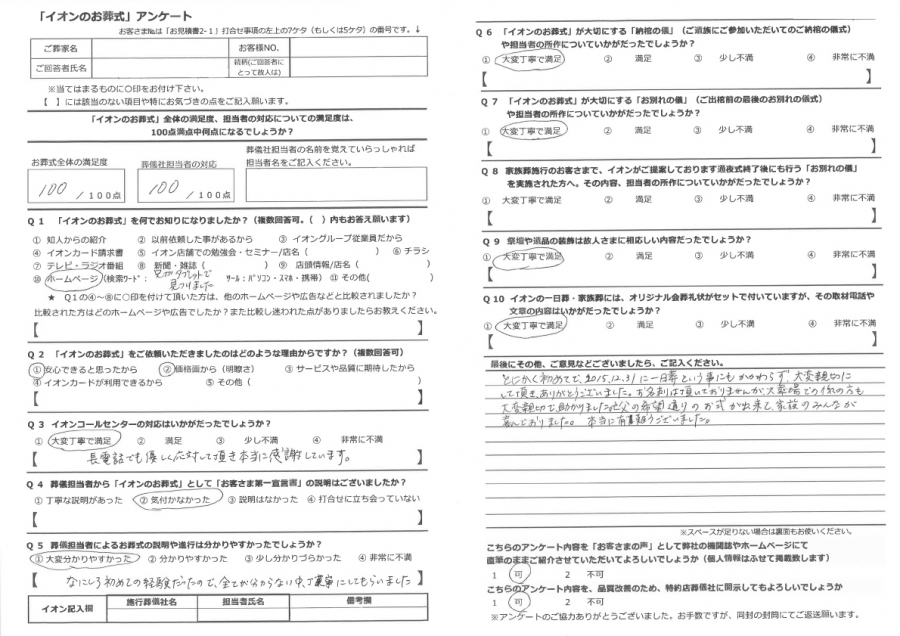 「イオンのお葬式」アンケート
お客さま№は「お見積書2-1」打合せ事項の左上の7ケタ（もしくは5ケタ）の番号です。↓
ご葬家名 お客様NO.
ご回答者氏名 続柄(ご回答者に
とって故人は)
※当てはまるものに○印をお付け下さい。
【　】には該当のない項目や特にお気づきの点をご記入願います。
「イオンのお葬式」全体の満足度、担当者の対応についての満足度は、
100点満点中何点になるでしょうか？
お葬式全体の満足度 葬儀社担当者の対応 葬儀社担当者の名前を覚えていらっしゃれば
担当者名をご記入ください。
100 / 100点 100 / 100点
Q 1 「イオンのお葬式」を何でお知りになりましたか？（複数回答可。（　）内もお答え願います）
① 知人からの紹介 ② 以前依頼した事があるから ③ イオングループ従業員だから
④ イオンカード請求書 ⑤ イオン店舗での勉強会・セミナー/店名（　） ⑥ チラシ
⑦ テレビ・ラジオ番組 ⑧ 新聞・雑誌（　） ⑨ 店頭情報/店名（　）
⑩ ホームページ（検索ワード： タブレットで
見つけました ツール：パソコン・スマホ・携帯） ⑪ その他（　）
★ Q1の④～⑧に○印を付けて頂いた方は、他のホームページや広告などと比較されましたか？
比較された方はどのホームページや広告でしたか？また比較し迷われた点がありましたらお教えください。
【　】
Q 2 「イオンのお葬式」をご依頼いただきましたのはどのような理由からですか？（複数回答可）
①安心できると思ったから ②価格面から（明瞭さ） ③ サービスや品質に期待したから
④イオンカードが利用できるから ⑤ その他（　）
【　】
Q 3 イオンコールセンターの対応はいかがだったでしょうか？
① 大変丁寧で満足 ② 満足 ③ 少し不満 ④ 非常に不満
【 長電話でも優しく応対して頂き本当に感謝しています。 】
Q 4 葬儀担当者から「イオンのお葬式」として「お客さま第一宣言書」の説明はございましたか？
① 丁寧な説明があった ② 気付かなかった ③ 説明はなかった ④ 打合せに立ち会っていない
【　】
Q 5 葬儀担当者によるお葬式の説明や進行は分かりやすかったでしょうか？
① 大変分かりやすかった ② 分かりやすかった ③ 少し分かりづらかった ④ 非常に不満
【 なにしろ初めての経験だったので、全てが分からない中、丁寧にしてもらいました 】
イオン記入欄 施行葬儀社名 担当者氏名 備考欄
Q 6 「イオンのお葬式」が大切にする「納棺の儀」（ご遺族にご参加いただいてのご納棺の儀式）
や担当者の所作についていかがだったでしょうか？
① 大変丁寧で満足 ② 満足 ③ 少し不満 ④ 非常に不満
【　】
Q 7 「イオンのお葬式」が大切にする「お別れの儀」（ご出棺前の最後のお別れの儀式）
や担当者の所作についていかがだったでしょうか？
① 大変丁寧で満足 ② 満足 ③ 少し不満 ④ 非常に不満
【　】
Q 8 家族葬施行のお客さまで、イオンがご提案しております通夜式終了後にも行う「お別れの儀」
を実施された方へ。その内容、担当者の所作についていかがだったでしょうか？
① 大変丁寧で満足 ② 満足 ③ 少し不満 ④ 非常に不満
【　】
Q 9 祭壇や遺品の装飾は故人さまに相応しい内容だったでしょうか？
① 大変丁寧で満足 ② 満足 ③ 少し不満 ④ 非常に不満
【　】
Q 10 イオンの一日葬・家族葬には、オリジナル会葬礼状がセットで付いていますが、その取材電話や
文章の内容はいかがだったでしょうか？
① 大変丁寧で満足 ② 満足 ③ 少し不満 ④ 非常に不満
【　】
最後にその他、ご意見などございましたら、ご記入ください。
とにかく初めてで、2015.12.31に一日葬という事にもかかわらず、大変親切に
して頂き、ありがとうございました。お名刺は頂いておりませんが、大斎場での係の方も
大変親切で、助かりました。父の希望通りのお式が出来て、家族のみんなが
喜んでおりました。 本当に有難うございました。
※スペースが足りない場合は裏面もお使いください。
こちらのアンケート内容を「お客さまの声」として弊社の機関誌やホームページにて
直筆のままご紹介させていただいてよろしいでしょうか（個人情報はふせて掲載致します）
1 可 2 不可
こちらのアンケート内容を、品質改善のため、特約店葬儀社に開示してもよろしいでしょうか
1 可 2 不可
※アンケートのご協力ありがとうございました。お手数ですが、同封の封筒にてご返送願います。